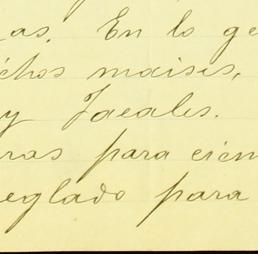 as. En lo ge
chos maises,
y Jaeales.
ras para cien
eglado para